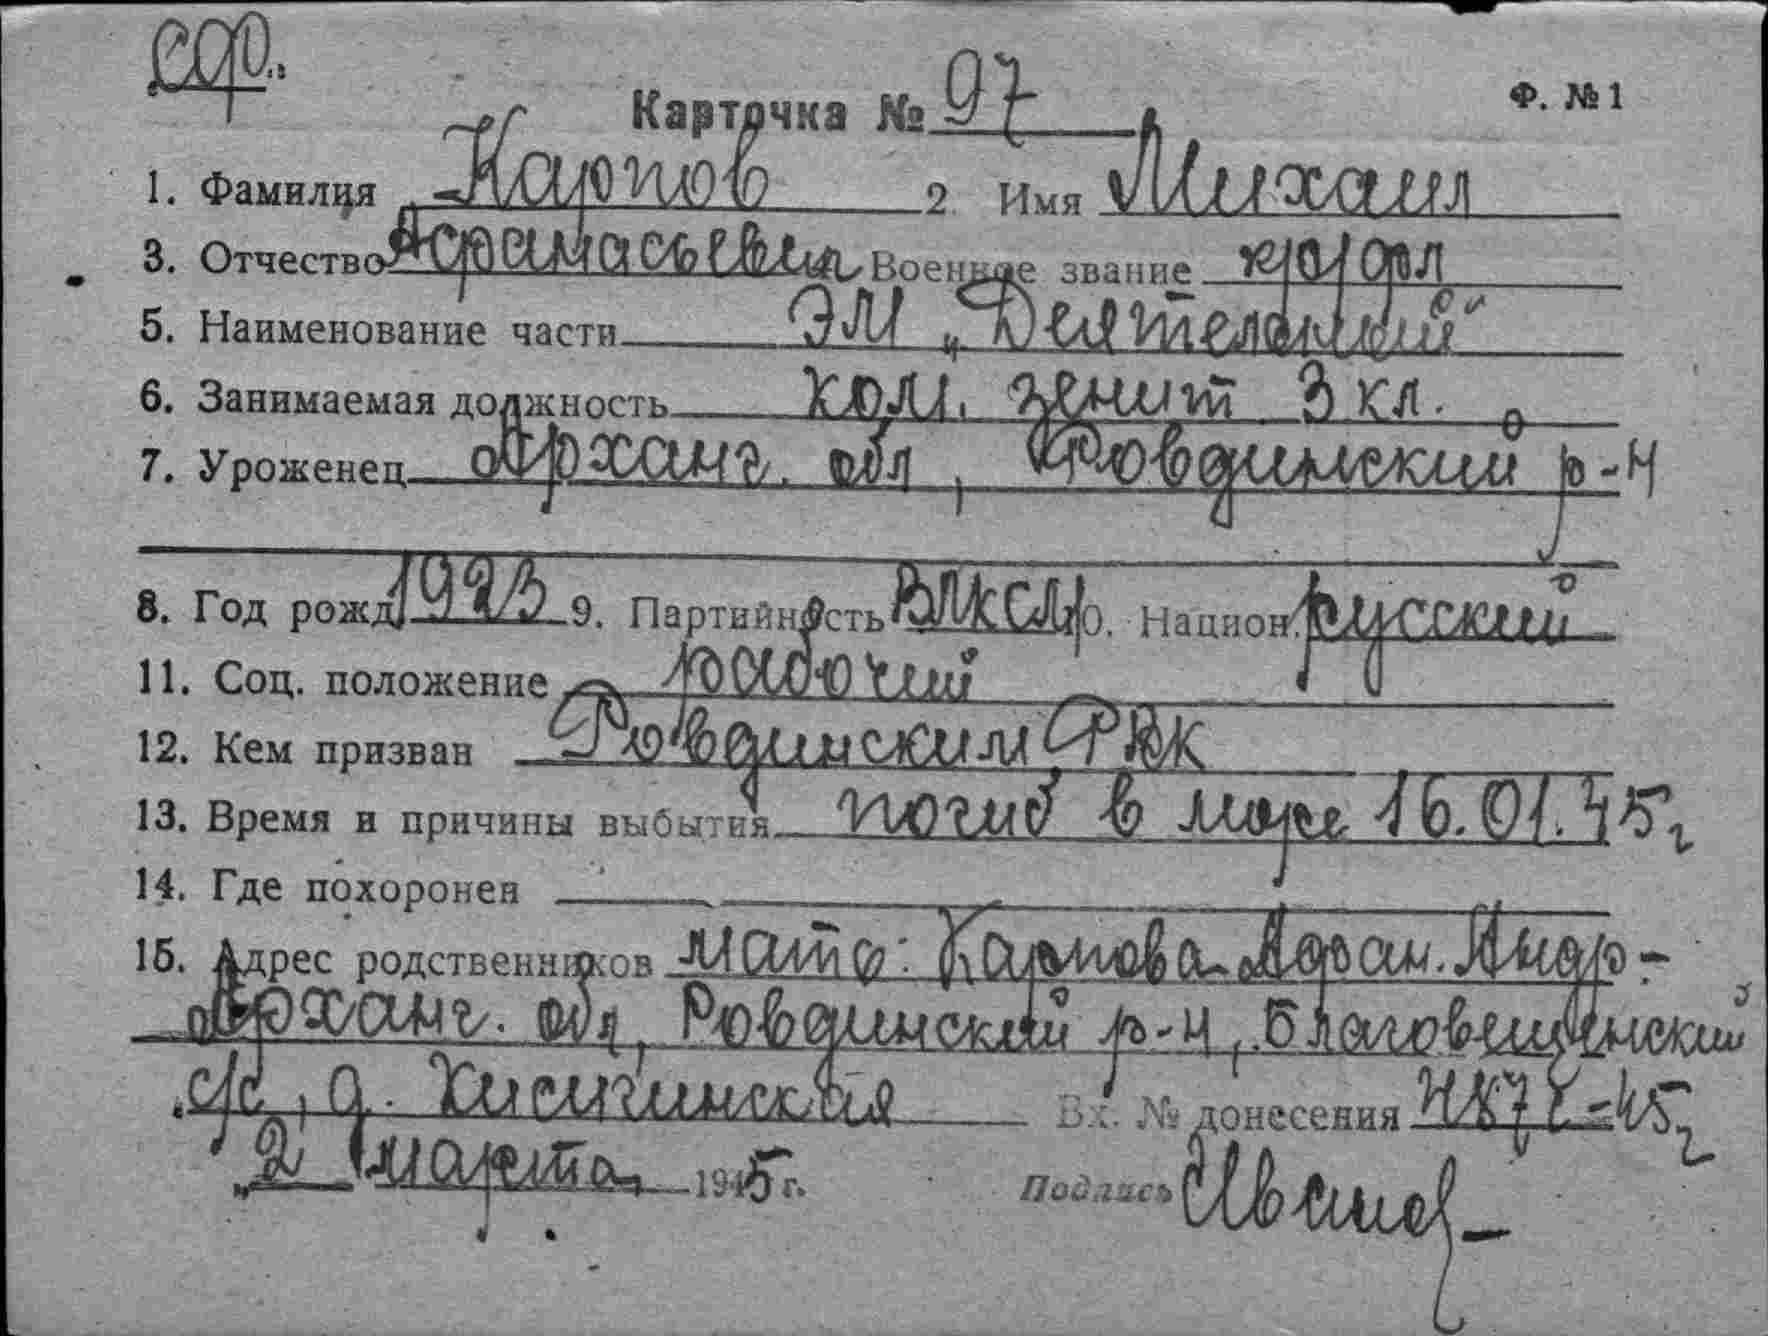 Карточка № 97 Ф. № 1
1. Фамилия Карпов 2 Имя Михаил
3. Отчество Афанасьевич Военное звание кр-арм
5. Наименование части ЭМ „Деятельный“
6. Занимаемая должность ком. зенит 3 кл.
7. Уроженец Арханг. обл, Ровдинский р-н
8. Год рожд. 1923 9. Партийность ВЛКСМ 10. Национ. русский
11. Соц. положение рабочий
12. Кем призван Ровдинским РВК
13. Время и причины выбытия погиб в море 16.01.45г
14. Где похоронен
15. Адрес родственников мать: Карпова Андр-
Арханг. обл, Ровдинский р-н, Благовещенский
с/с, д.
Вх. № донесения
„2“ марта 1945 г. Подпись